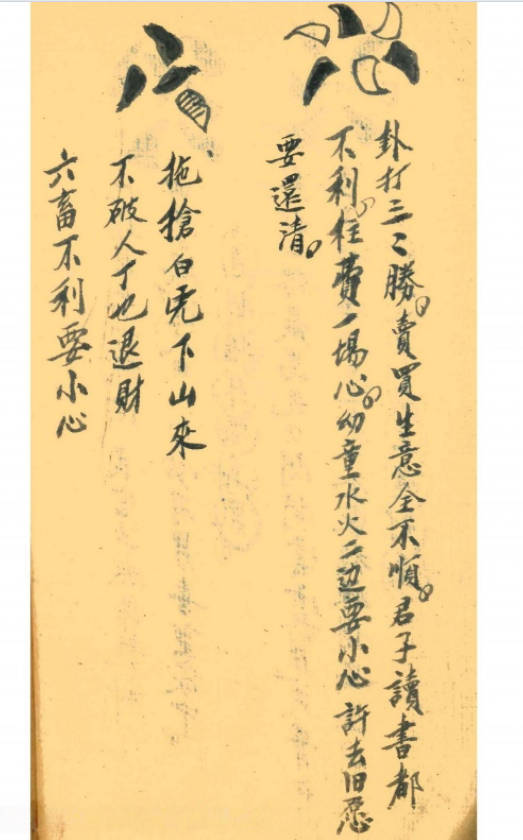 卦打三〻勝。賣買生意全不順。君子讀書都
不利。枉費一場心。幼童水火二边要小心 許去旧愿
要還清。
拖槍白虎下山來
不破人丁也退財
六畜不利要小心